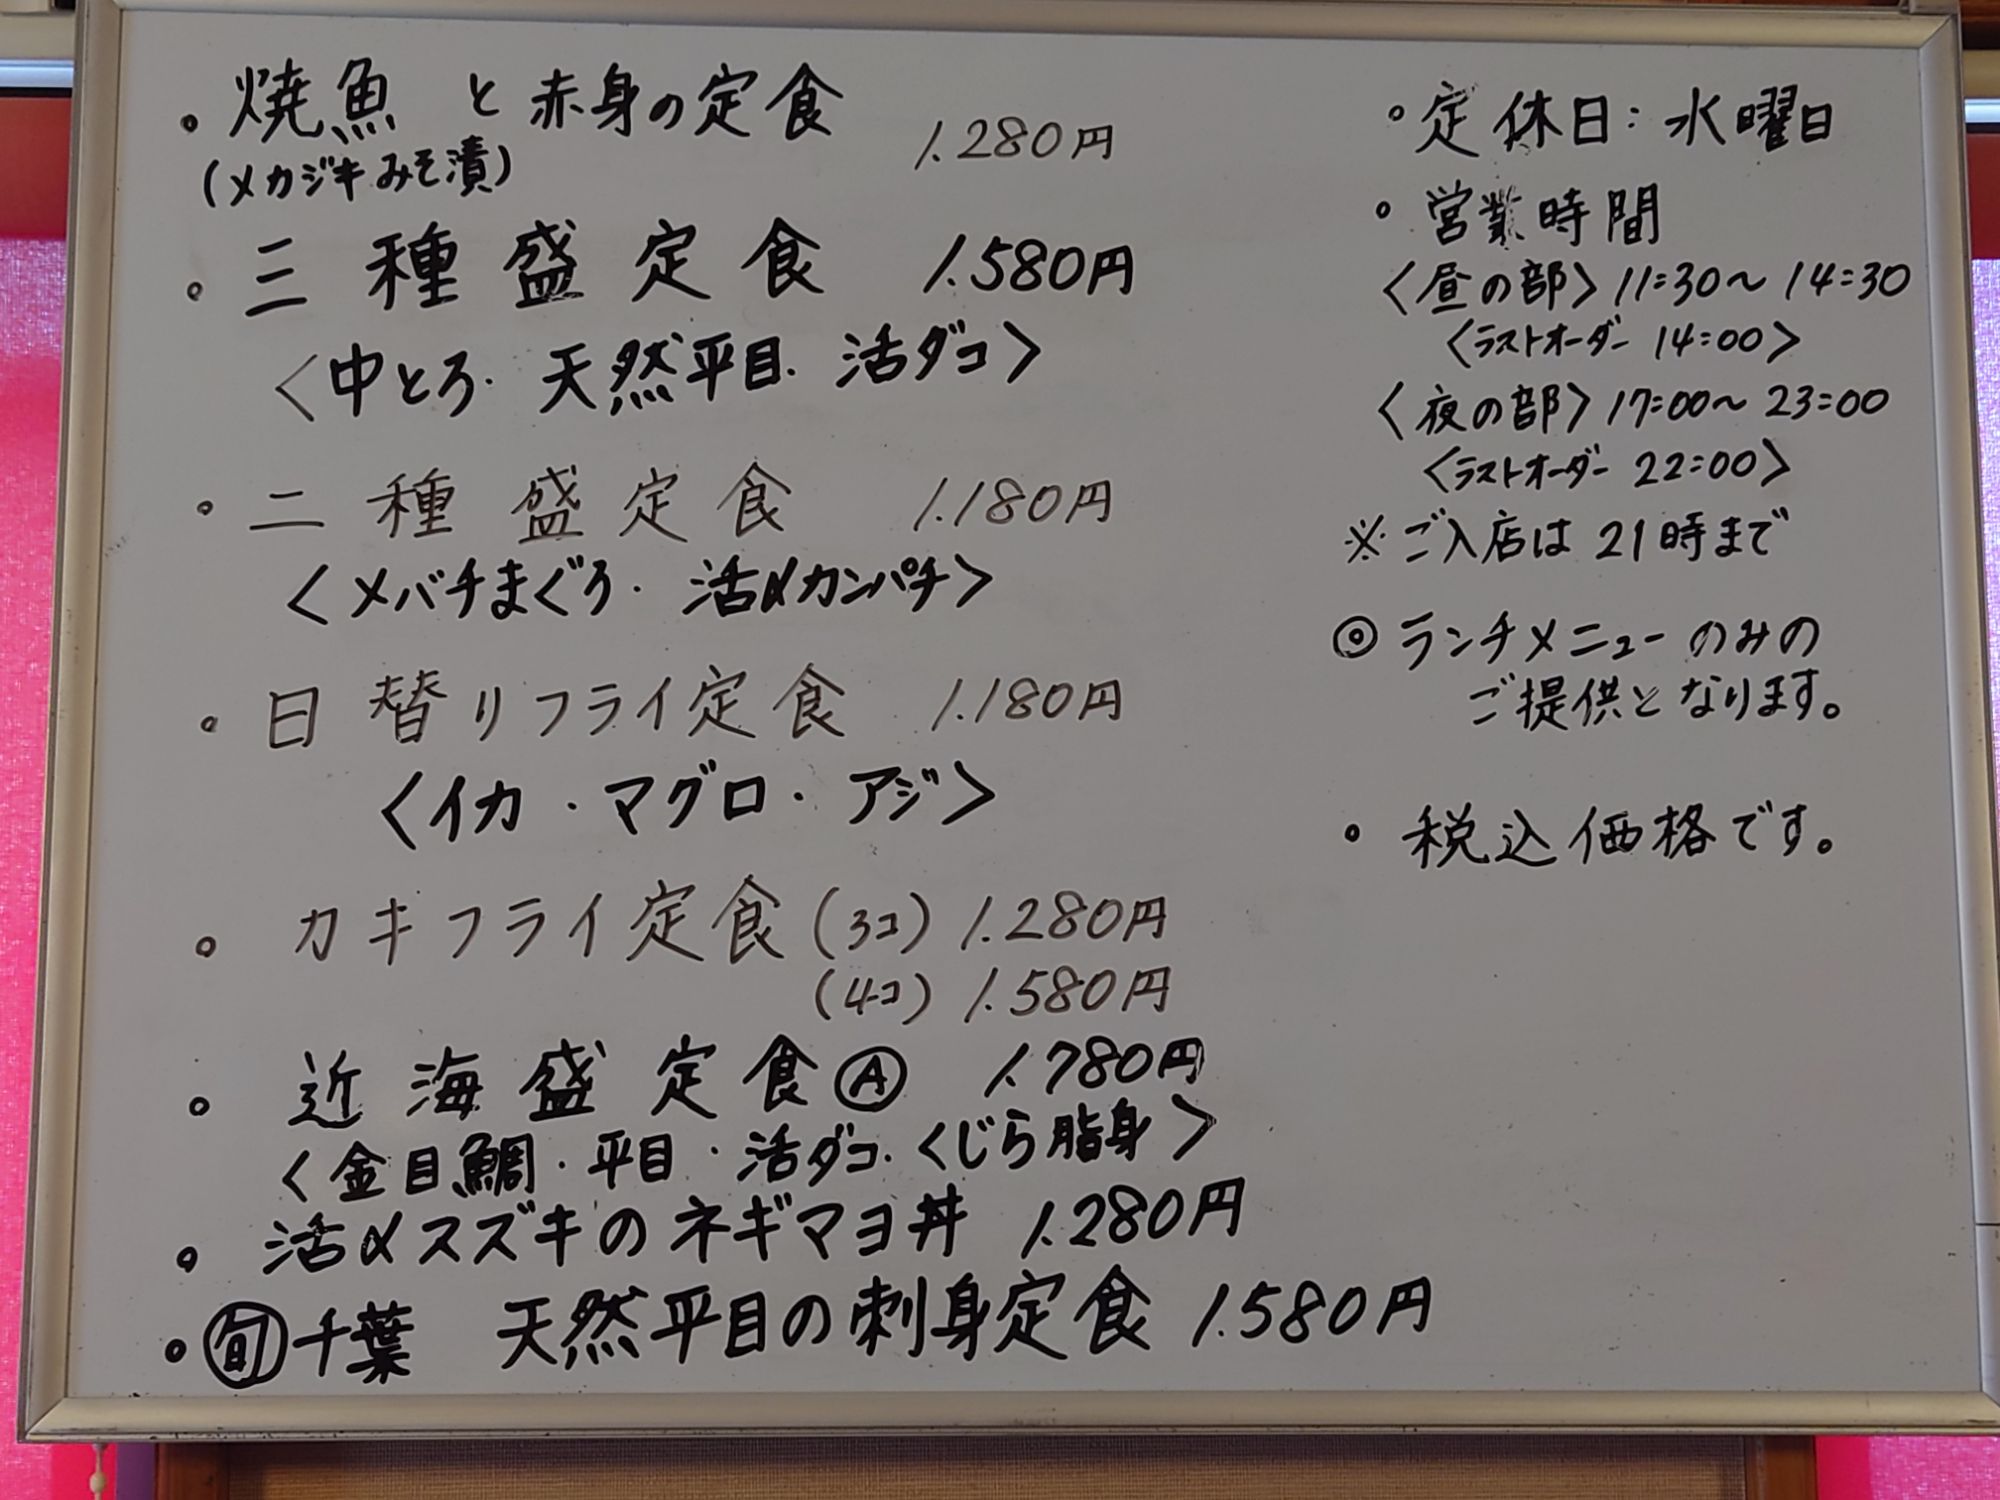 ・焼魚と赤身の定食 1.280円
(メカジキみそ漬)
・三種盛定食 1.580円
〈中とろ・天然平目・活ダコ〉
・二種盛定食 1.180円
〈メバチまぐろ・活〆カンパチ〉
・日替りフライ定食 1.180円
〈イカ・マグロ・アジ〉
・カキフライ定食(3コ) 1.280円
(4コ) 1.580円
・近海盛定食Ⓐ 1.780円
〈金目鯛・平目・活ダコ・くじら脂身〉
・活〆スズキのネギマヨ丼 1.280円
・旬千葉 天然平目の刺身定食 1.580円
・定休日:水曜日
・営業時間
〈昼の部〉11:30〜14:30
〈ラストオーダー 14:00〉
〈夜の部〉17:00〜23:00
〈ラストオーダー 22:00〉
※ご入店は21時まで
◎ランチメニューのみの
ご提供となります。
・税込価格です。